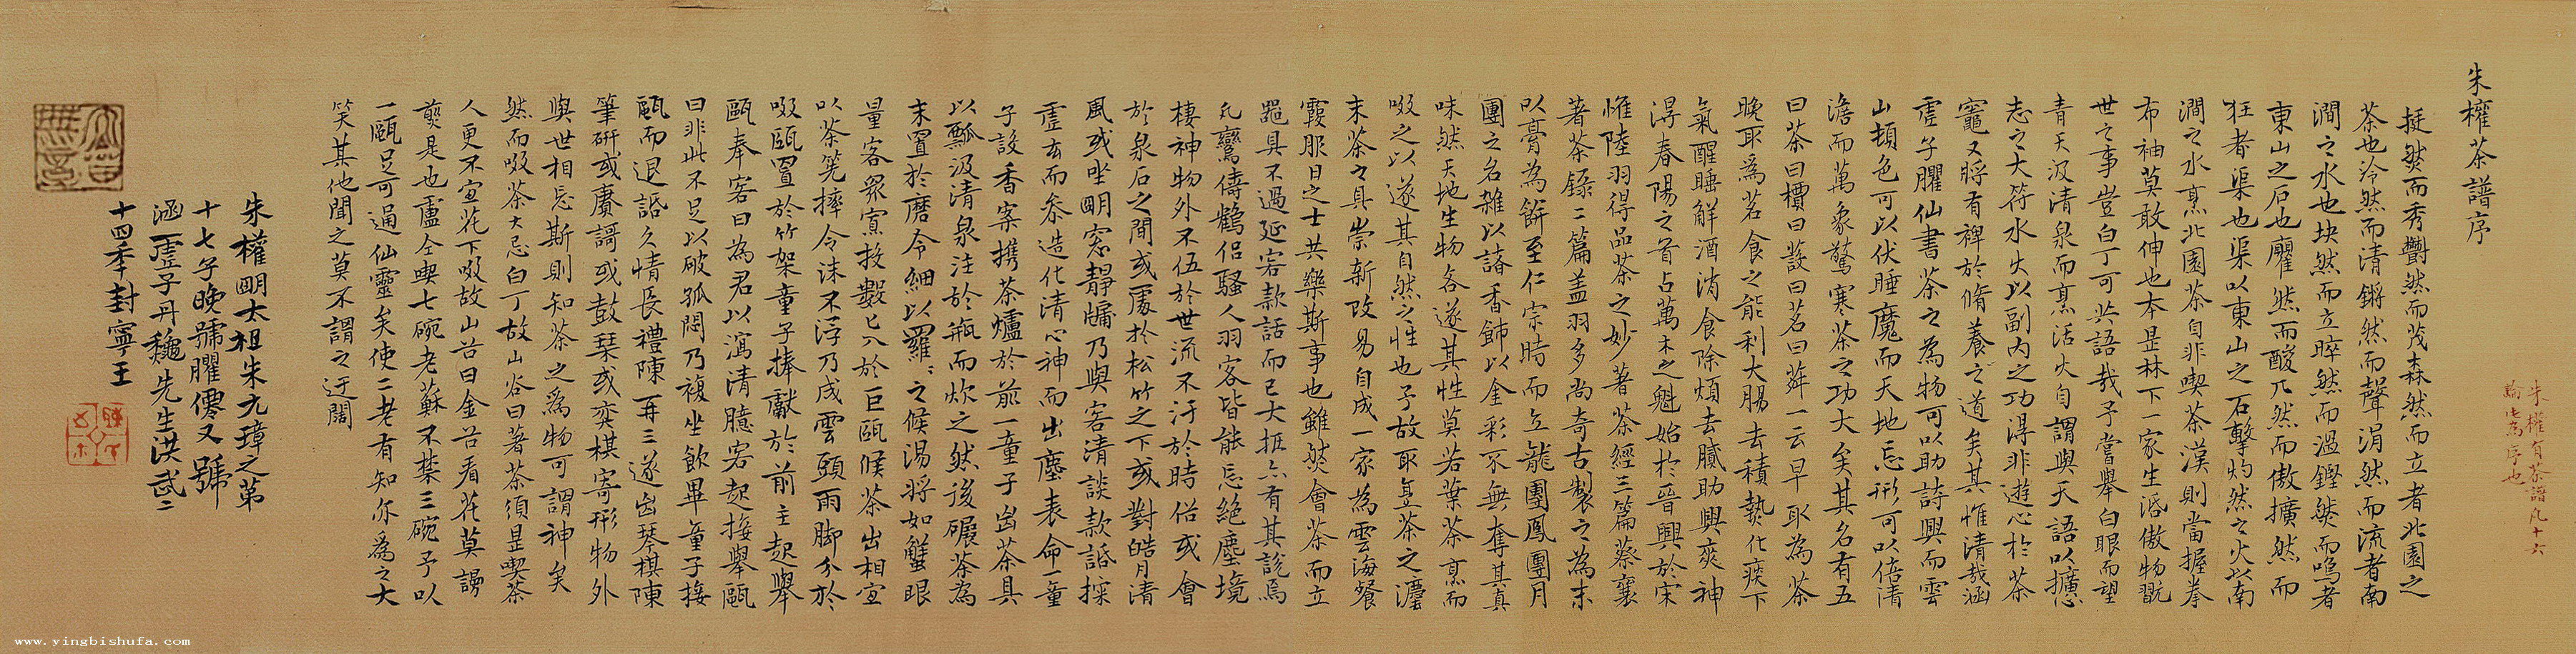 朱權有茶譜凡十六
論此為序也
朱權茶譜序
挺然而秀鬱然而茂森然而立者北園之
茶也泠然而清鏘然而聲涓然而流者南
澗之水也块然而立晬然而溫鏗然而鳴者
東山之石也癯然而酸兀然而傲擴然而
狂者渠也渠以東山之石擊灼然之火以南
澗之水烹北園茶自非喫茶漢則當握拳
布袖莫敢伸也本是林下一家生活傲物翫
世之事豈白丁可共語哉予嘗舉白眼而望
青天汲清泉而烹活火自謂與天語以擴心
志之大符水火以副內之功得非遊心於茶
竈又將有裨於脩養之道矣其惟清哉涵
虛子臞仙書茶之為物可以助詩興而雲
山頓色可以伏睡魔而天地忘形可以倍清
談而萬象驚寒茶之功大矣其名有五
曰茶曰檟曰蔎曰茗曰荈一云早取為茶
晚取為茗食之能利大腸去積熱化痰下
氣醒睡解酒消食除煩去膩助興爽神
得春陽之首占萬木之魁始於晉興於宋
惟陸羽得品茶之妙著茶經三篇蔡襄
著茶錄二篇盖羽多尚奇古製之為末
以膏為餅至仁宗時而立龍團鳳團月
團之名雜以諸香飾以金彩不無奪其真
味然天地生物各遂其性莫若葉茶烹而
啜之以遂其自然之性也予故取亨茶之灋
末茶之具崇新改易自成一家為雲海餐
霞服日之士共樂斯事也雖然會茶而立
器具不過延客款話而已大抵亦有其說焉
凡鸞儔鶴侶騷人羽客皆能忘絕塵境
棲神物外不伍於世流不汙於時俗或會
於泉石之間或處於松竹之下或對皓月清
風或坐明窓靜牖乃與客清談款話探
虛玄而參造化清心神而出塵表命一童
子設香案携茶爐於前一童子出茶具
以瓢汲清泉注於瓶而炊之然後碾茶為
末置於磨令細以羅〻之候湯將如蟹眼
量客眾寡投數匕入於巨甌候茶出相宜
以茶筅摔令沫不浮乃成雲頭雨脚分於
啜甌置於竹架童子捧獻於前主起舉
甌奉客曰為君以瀉清臆客起接舉甌
曰非此不足以破孤悶乃複坐飲畢童子接
甌而退話久情長禮陳再三遂出琴棋陳
筆研或賡謌或鼓琴或奕棋寄形物外
與世相忘斯則知茶之為物可謂神矣
然而啜茶大忌白丁故山谷曰著茶須是喫茶
人更不宜花下啜故山谷曰金谷看花莫謾
煎是也盧仝喫七碗老蘇不禁三碗予以
一甌足可通仙靈矣使二老有知亦為之大
笑其他聞之莫不謂之迂闊
朱權明太祖朱元璋之第
十七子晚號臞僊又號
涵虛子丹龝先生洪武二
十四季封寧王
www.yingbishufa.com